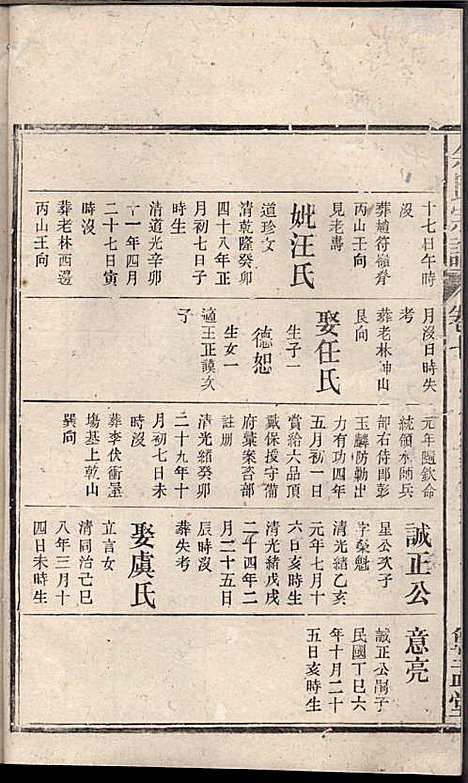 十七日午時
沒
葬塘符嶺脊
丙山壬向
見老譜
妣汪氏
道珍文
清乾隆癸卯
四十八年正
月初七日子
時生
清道光辛卯
十一年四月
二十七日寅
時沒
葬老林西邊
丙山壬向
月沒日時失
考
葬老林坤山
艮向
娶任氏
生子一
德恕
生女一
適王正謨次
子
元年隨欽命
統領水師兵
部右侍郎彭
玉麟防勦出
力有功四年
五月初一日
賞給六品頂
戴保援守備
府彙案咨部
註册
清光緒癸卯
二十九年十
月初七日未
時沒
葬李伏衝屋
塲基上乾山
巽向
誠正公
星公次子
字榮魁
清光緒乙亥
元年七月十
六日亥時生
清光緒戊戌
二十四年二
月二十五日
辰時沒
葬失考
娶虞氏
立言女
清同治己巳
八年三月十
四日未時生
意亮
誠正公嗣子
民國丁巳六
年十月二十
五日亥時生
氏宗譜
卷七
堂